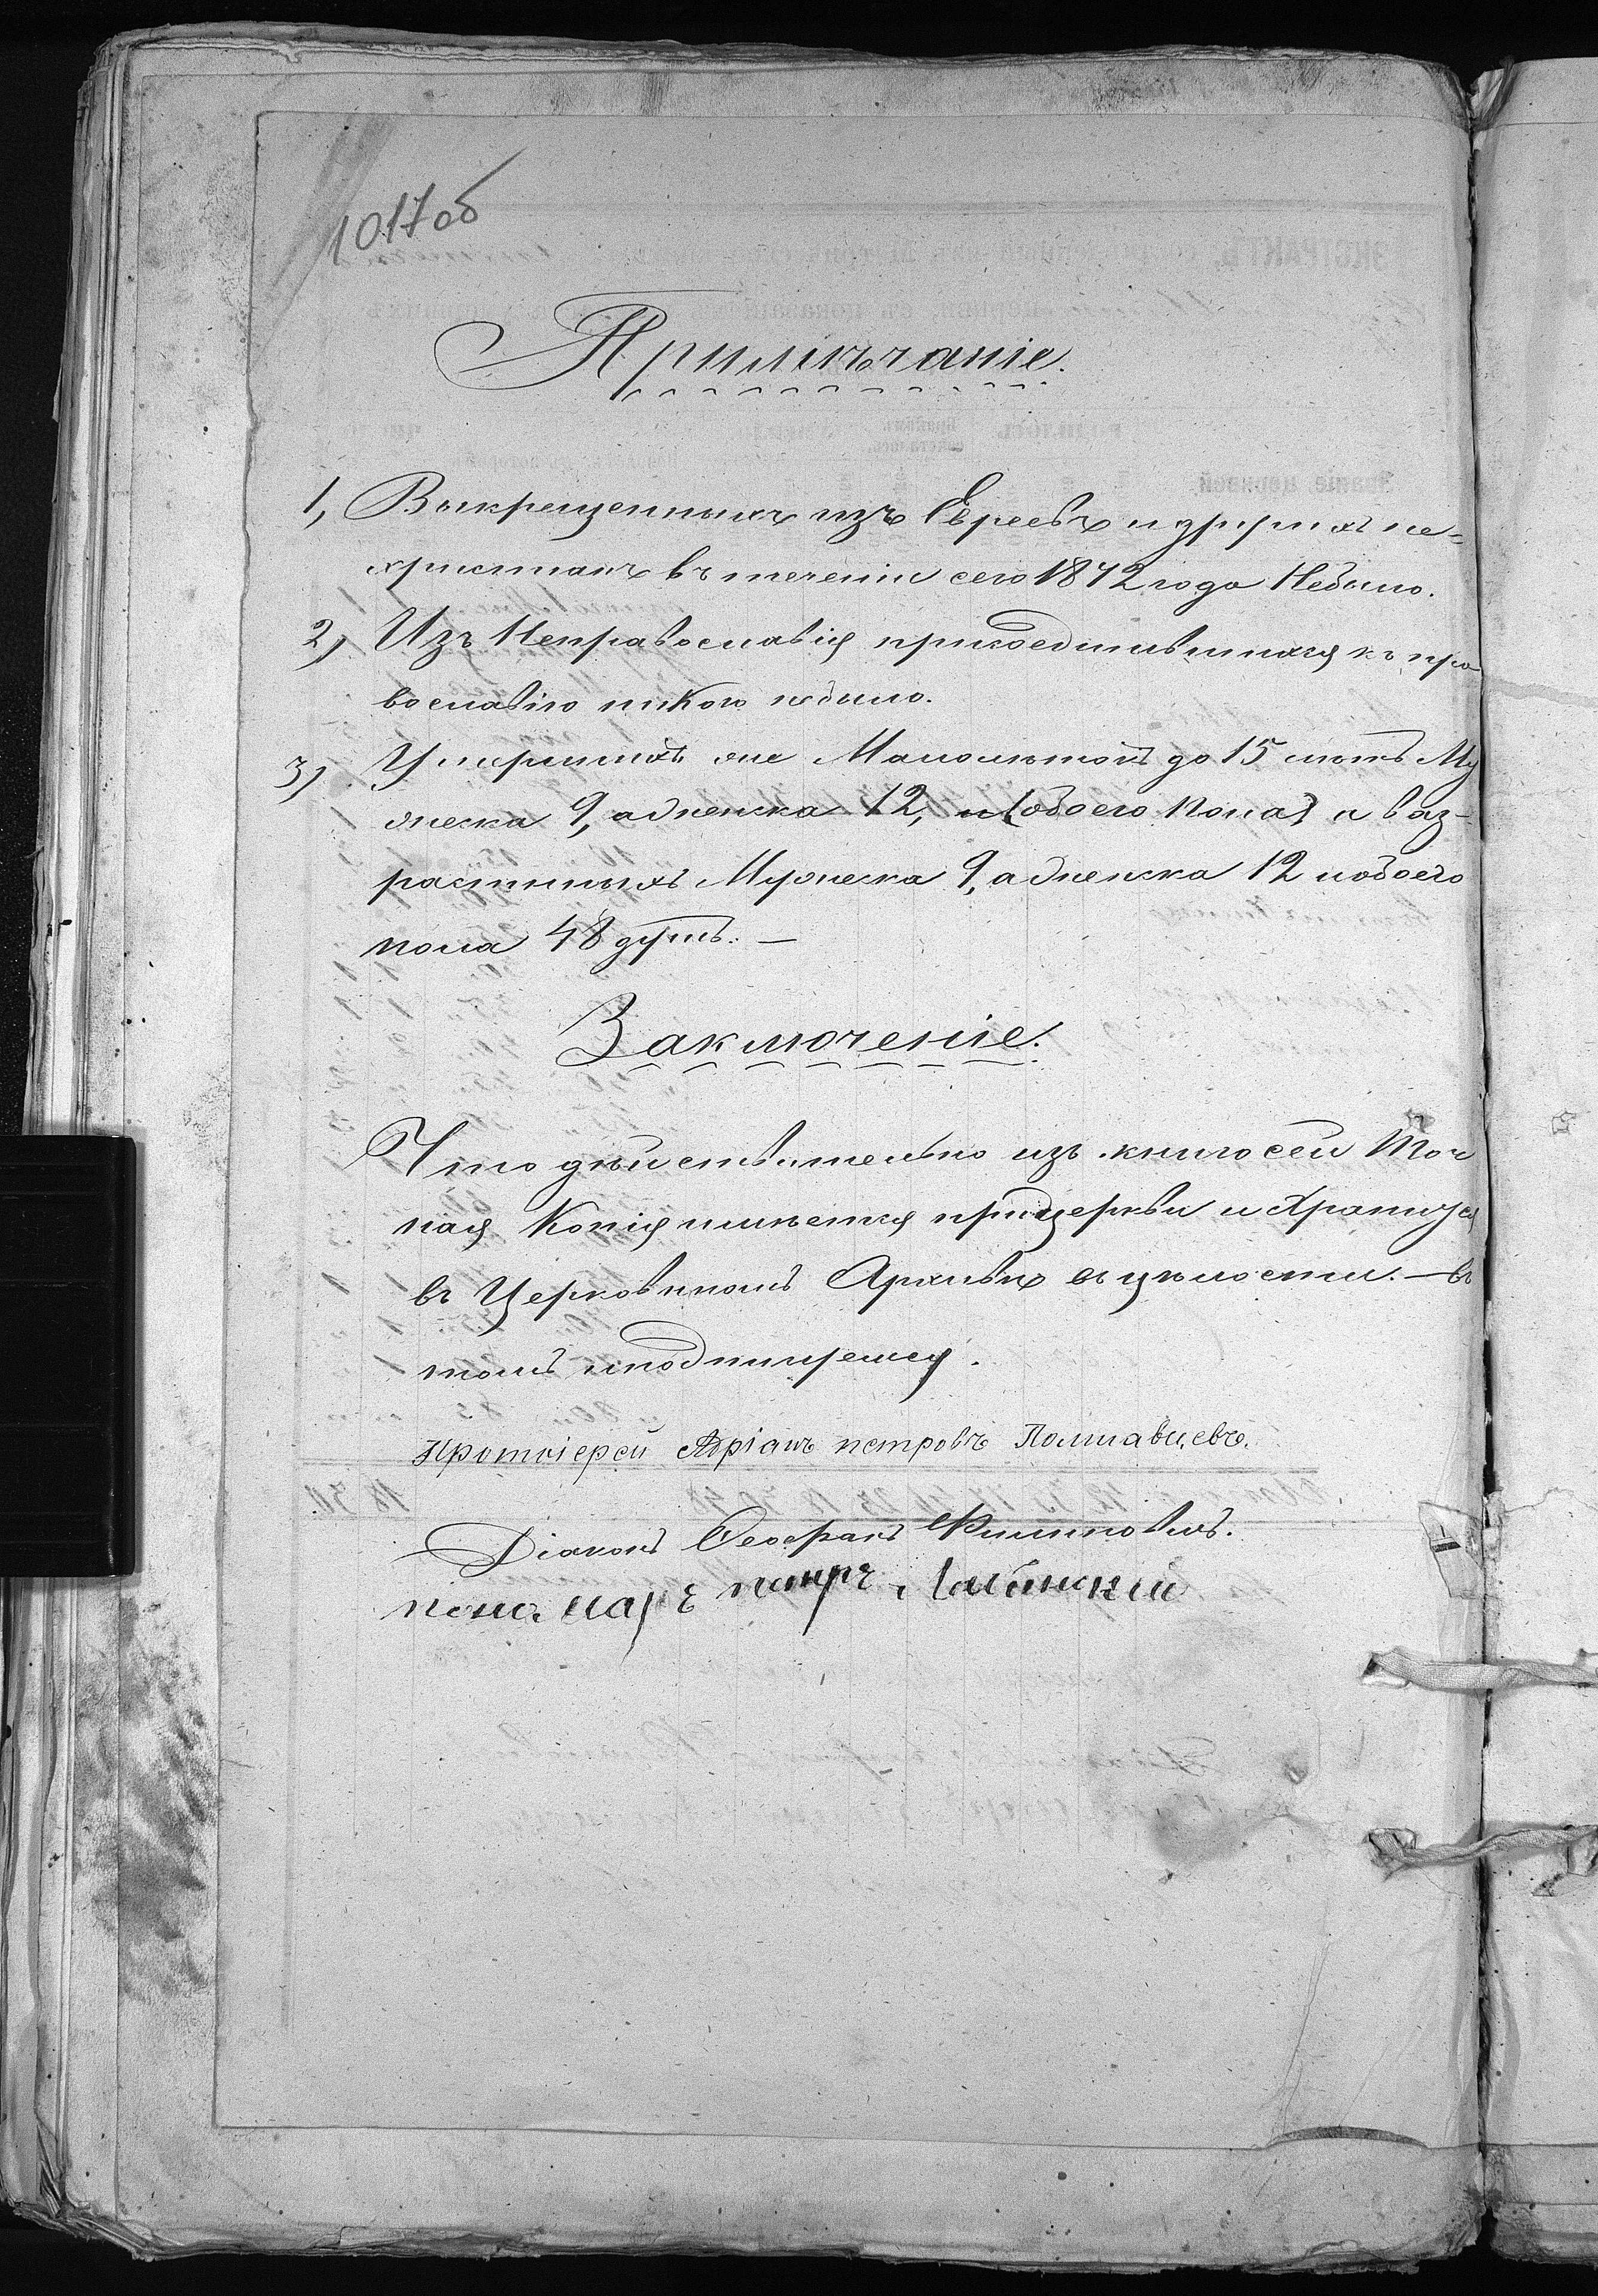 1017об
Примѣчаніе.
1, Выкрещенныхъ изъ Евреевъ и другихъ не-
христіанъ въ теченіи сего 1872 года Небыло.
2) Изъ Неправославія присоединившихся къ пра
вославію никого небыло.
3) Умершихъ же Малолѣтокъ до 15 лѣтъ Му
жеска 9, а женска 12, и (обоего пола) аваз-
растныхъ Мужеска 9, а женска 12 иобоего
пола 48 душъ. —
Заключеніе.
Что дѣйствительно изъ книги сей Точ
ная Копія имѣется прицеркви и Хранится
въ Церковномъ Архивѣ въ цѣлости. — въ
томъ иподпишемся.
Протоіерей Адріанъ петровъ Полтавцевъ.
Діаконъ Филиповъ.
пономарь петръ